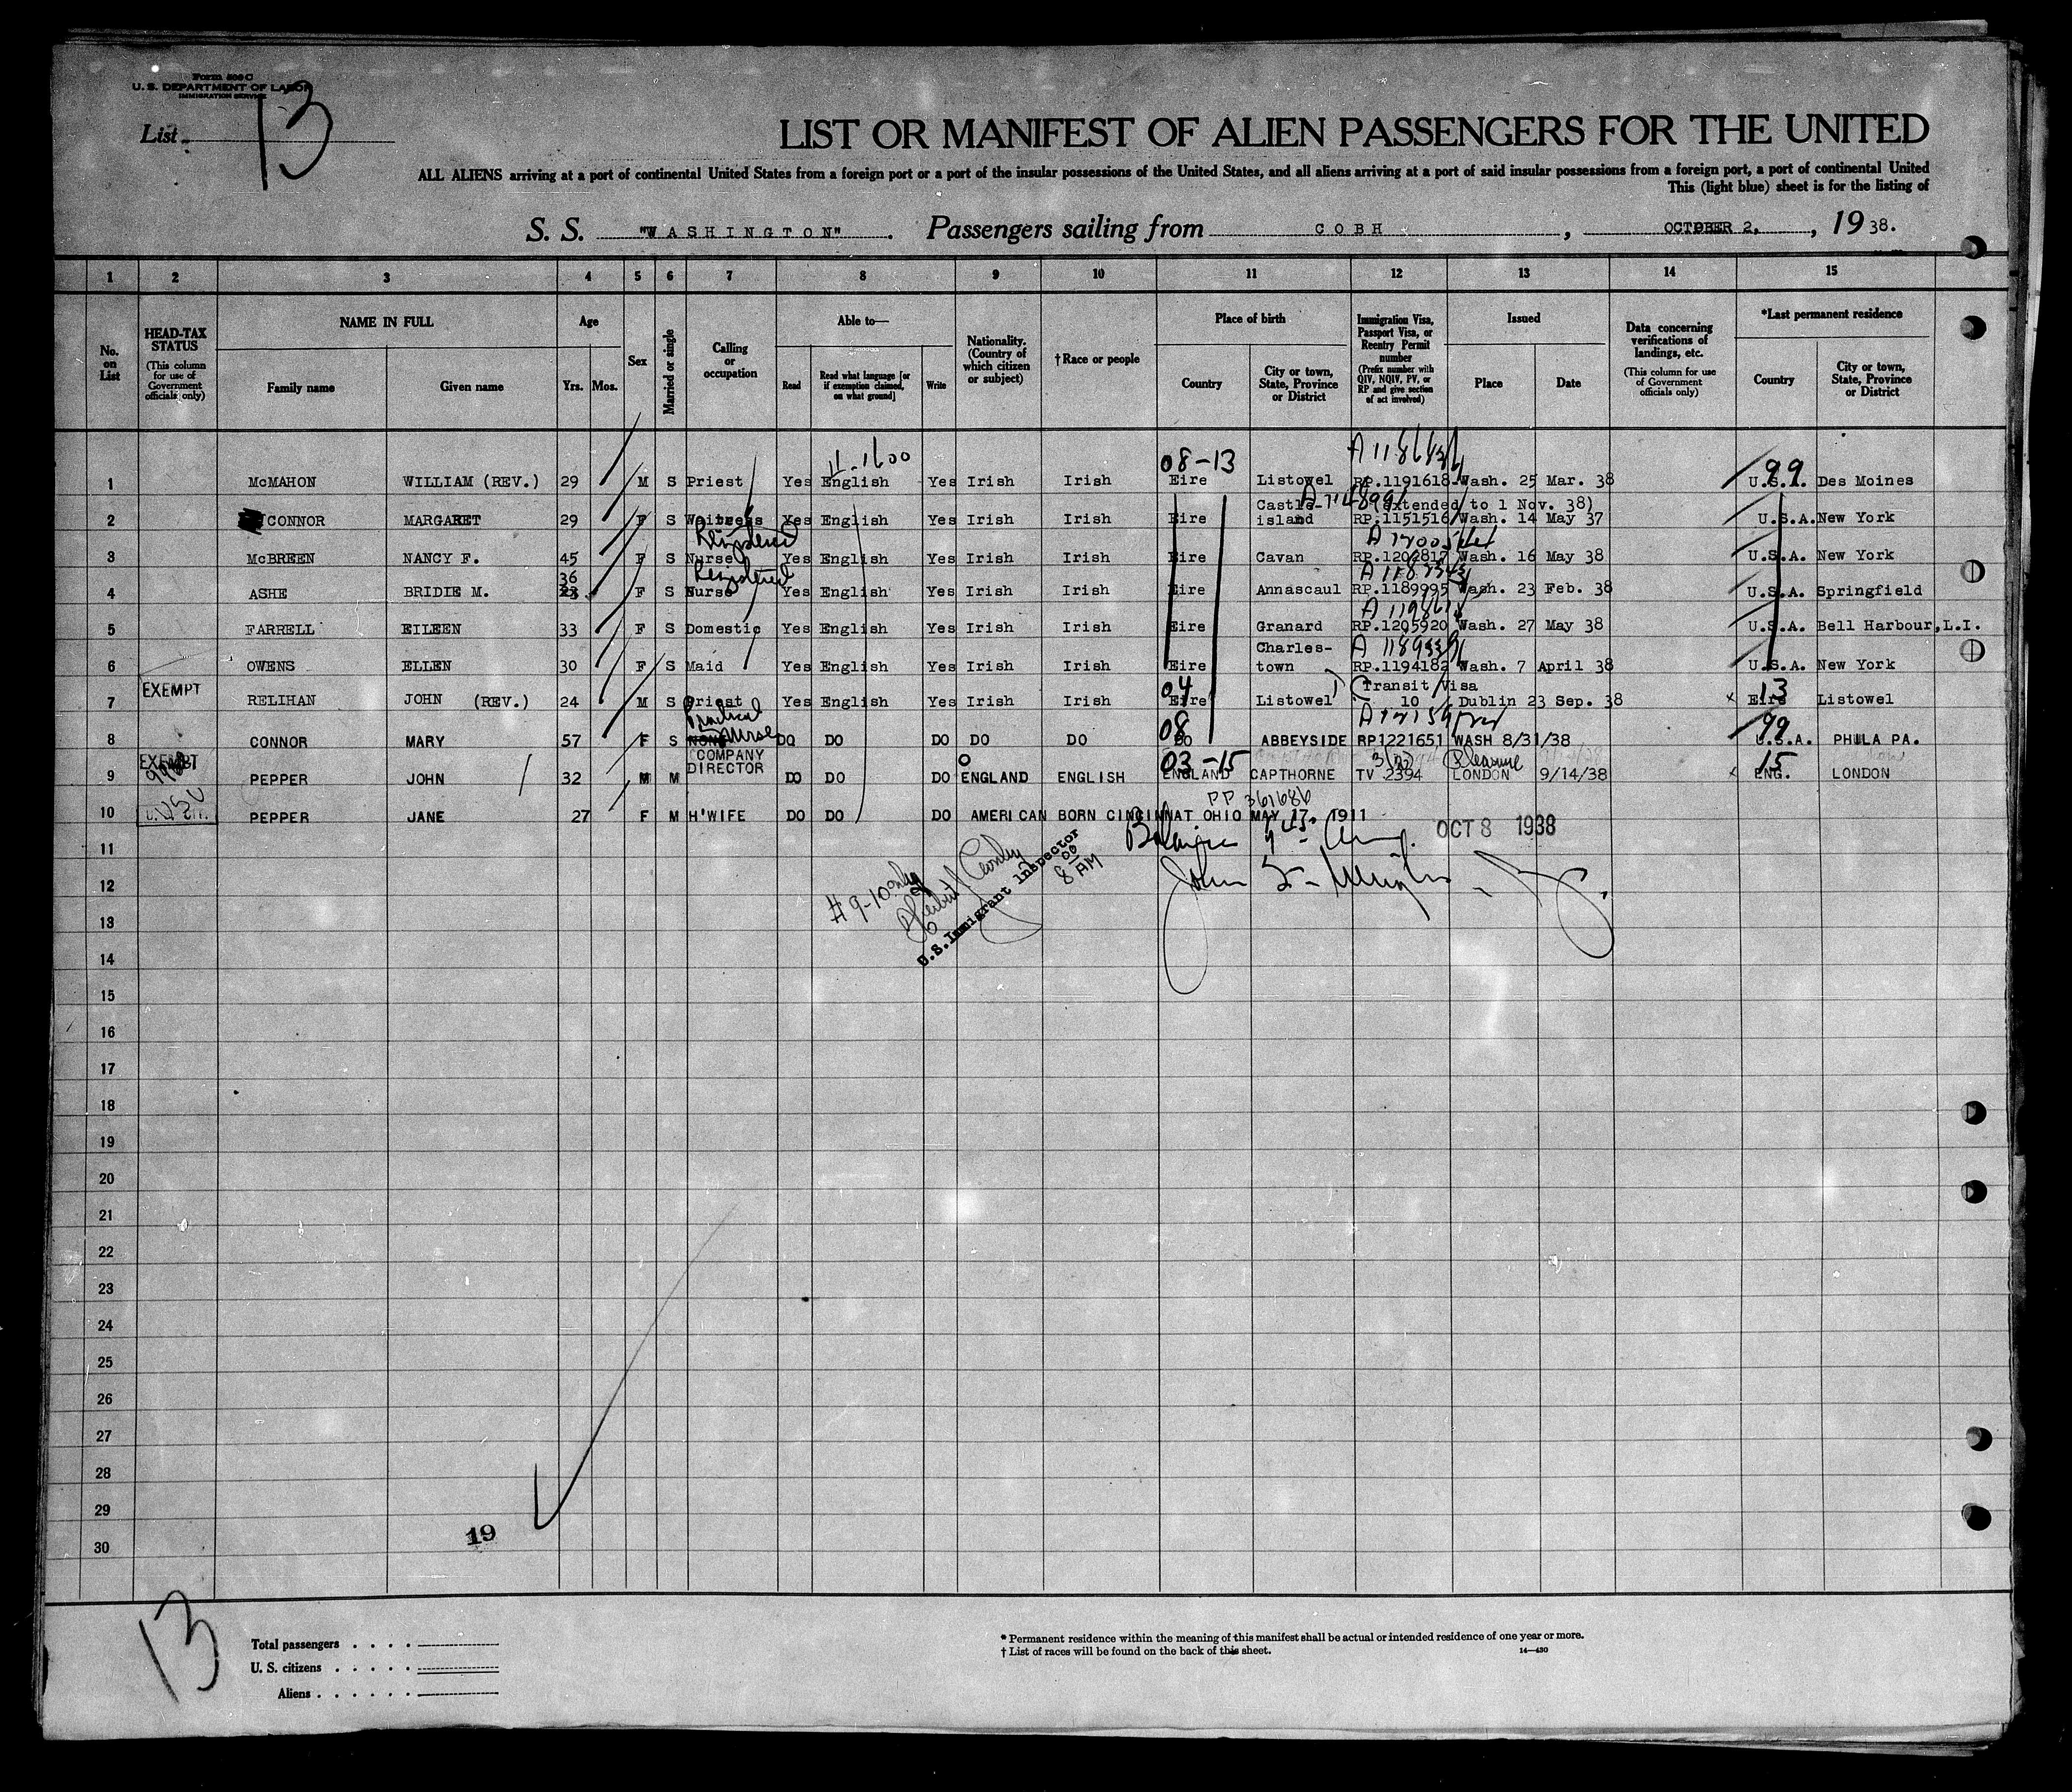 Form 500 C
U. S. DEPARTMENT OF LABOR
IMMIGRATION SERVICE
List 13
LIST OR MANIFEST OF ALIEN PASSENGERS FOR THE UNITED
ALL ALIENS arriving at a port of continental United States from a foreign port or a port of the insular possessions of the United States, and all aliens arriving at a port of said insular possessions from a foreign port, a port of continental United
This (light blue) sheet is for the listing of
S. S. "WASHINGTON". Passengers sailing from COBH, OCTOBER 2, 19 38.
1 2 3 4 5 6 7 8 9 10 11 12 13 14 15
No. on List
HEAD-TAX STATUS
(This column for use of Government officials only)
NAME IN FULL
Family name Given name
Age
Yrs. Mos.
Sex
Married or single
Calling or occupation
Able to—
Read Read what language [or if exemption claimed, on what ground] Write
Nationality. (Country of which citizen or subject)
†Race or people
Place of birth
Country City or town, State, Province or District
Immigration Visa, Passport Visa, or Reentry Permit number
(Prefix number with QIV, NQIV, PV, or RP and give section of act involved)
Issued
Place Date
Data concerning verifications of landings, etc.
(This column for use of Government officials only)
*Last permanent residence
Country City or town, State, Province or District
11-1600 08-13 99
1 McMAHON WILLIAM (REV.) 29 M S Priest Yes English Yes Irish Irish Eire Listowel RP.1191618 Wash. 25 Mar. 38 U.S.A. Des Moines
Castle- (extended to 1 Nov. 38)
2 CONNOR MARGARET 29 F S Waitress Yes English Yes Irish Irish Eire island RP.1151516 Wash. 14 May 37 U.S.A. New York
Registered
3 McBREEN NANCY F. 45 F S Nurse Yes English Yes Irish Irish Eire Cavan RP.1202817 Wash. 16 May 38 U.S.A. New York
36 Registered
4 ASHE BRIDIE M. 23 F S Nurse Yes English Yes Irish Irish Eire Annascaul RP.1189995 Wash. 23 Feb. 38 U.S.A. Springfield
5 FARRELL EILEEN 33 F S Domestic Yes English Yes Irish Irish Eire Granard RP.1205920 Wash. 27 May 38 U.S.A. Bell Harbour, L.I.
Charles-
6 OWENS ELLEN 30 F S Maid Yes English Yes Irish Irish Eire town RP.1194182 Wash. 7 April 38 U.S.A. New York
EXEMPT 04 (Transit Visa 13
7 RELIHAN JOHN (REV.) 24 M S Priest Yes English Yes Irish Irish Eire Listowel 10 Dublin 23 Sep. 38 Eire Listowel
Practical Nurse 08 99
8 CONNOR MARY 57 F S NONE DO DO DO DO DO DO ABBEYSIDE RP1221651 WASH 8/31/38 U.S.A. PHILA PA.
EXEMPT COMPANY 03-15 3(2) Pleasure 15
9 PEPPER JOHN 32 M M DIRECTOR DO DO DO ENGLAND ENGLISH ENGLAND CAPTHORNE TV 2394 LONDON 9/14/38 ENG. LONDON
USC PP 361686
10 U.S. CIT. PEPPER JANE 27 F M H'WIFE DO DO DO AMERICAN BORN CINCINNAT OHIO MAY 17, 1911
OCT 8 1938
11
12
#9-10 only
U.S. Immigrant Inspector
8 00 AM
13
14
15
16
17
18
19
20
21
22
23
24
25
26
27
28
29
19
30
13
Total passengers
U. S. citizens
Aliens
* Permanent residence within the meaning of this manifest shall be actual or intended residence of one year or more.
† List of races will be found on the back of this sheet.
14—430